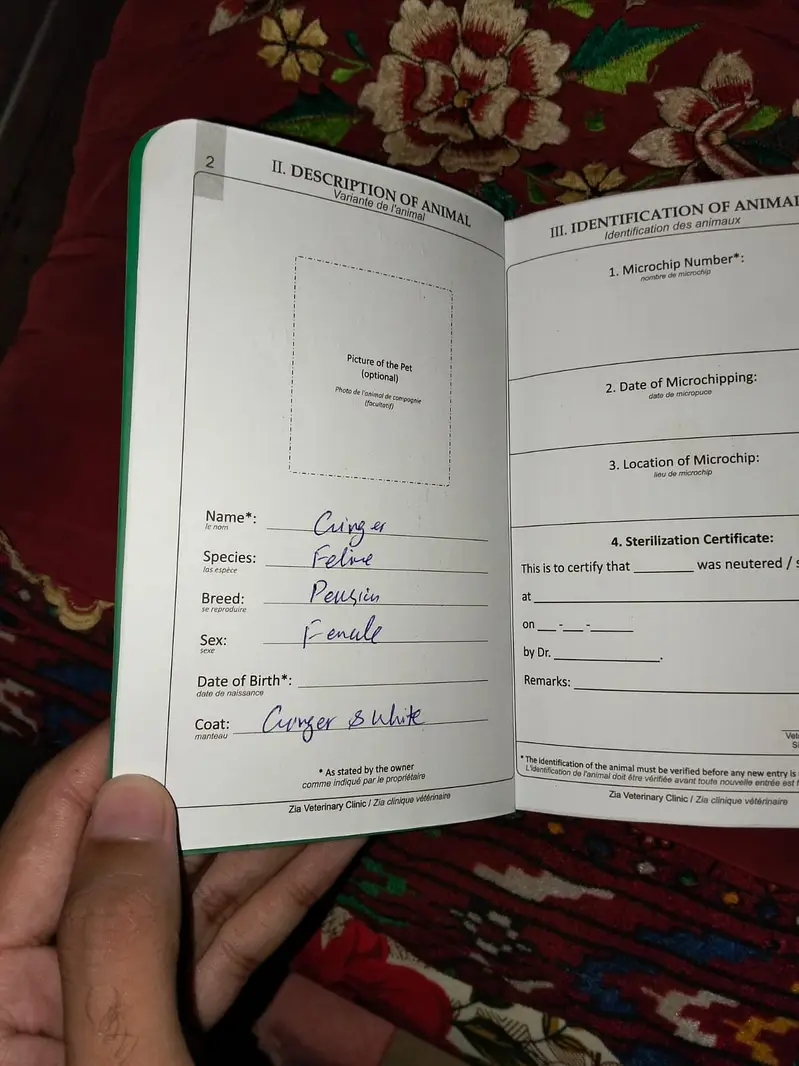 2
II. DESCRIPTION OF ANIMAL
Variante de l'animal
Picture of the Pet
(optional)
Photo de l'animal de compagnie
(facultatif)
Name*: Ginger
le nom
Species: Feline
las espèce
Breed: Persian
se reproduire
Sex: Female
sexe
Date of Birth*:
date de naissance
Coat: Ginger & White
manteau
* As stated by the owner
comme indiqué par le propriétaire
Zia Veterinary Clinic / Zia clinique vétérinaire
III. IDENTIFICATION OF ANIMAL
Identification des animaux
1. Microchip Number*:
nombre de microchip
2. Date of Microchipping:
date de micropuce
3. Location of Microchip:
lieu de microchip
4. Sterilization Certificate:
This is to certify that ________ was neutered / s
at
on ___-___-______
by Dr. ________________.
Remarks:
Vet
Si
* The identification of the animal must be verified before any new entry is
L'identification de l'animal doit être vérifiée avant toute nouvelle entrée est f
Zia Veterinary Clinic / Zia clinique vétérinaire